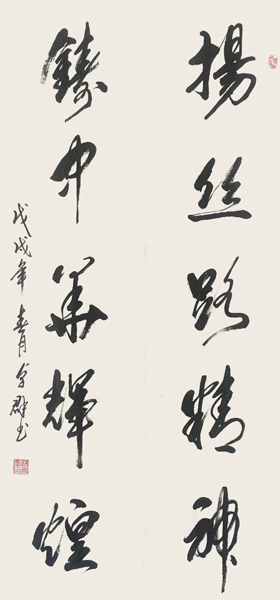 揚丝路精神
鑄中華輝煌
戊戌年春月